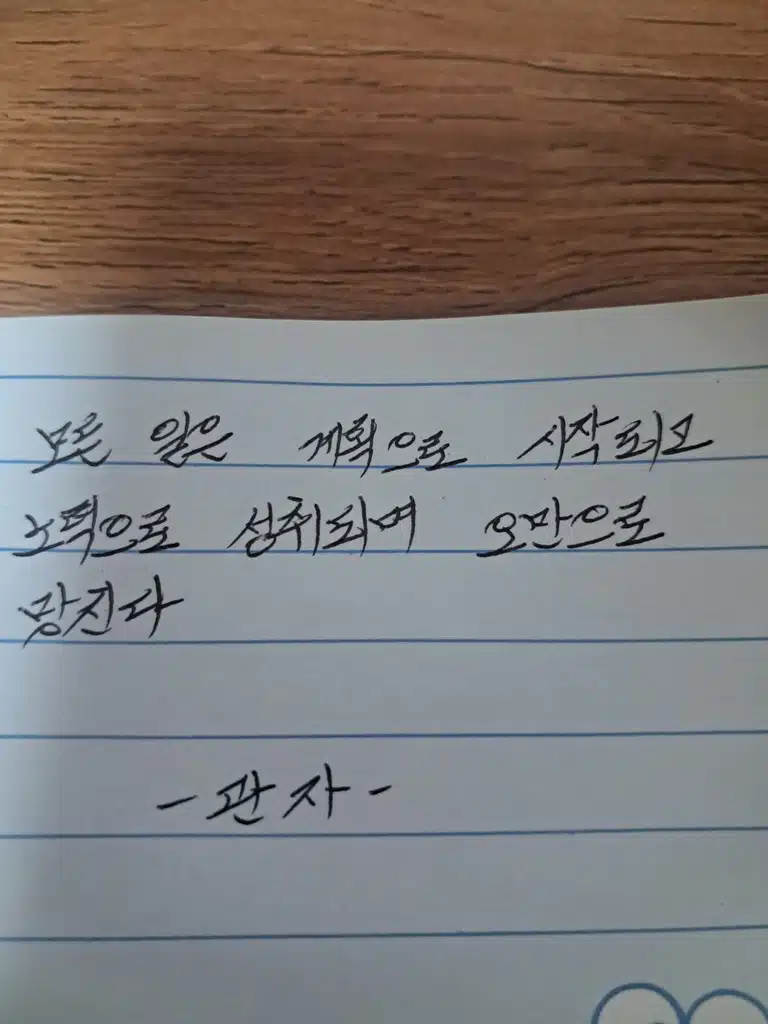 모든 일은 계획으로 시작되고
노력으로 성취되며 오만으로
망친다
- 관자 -